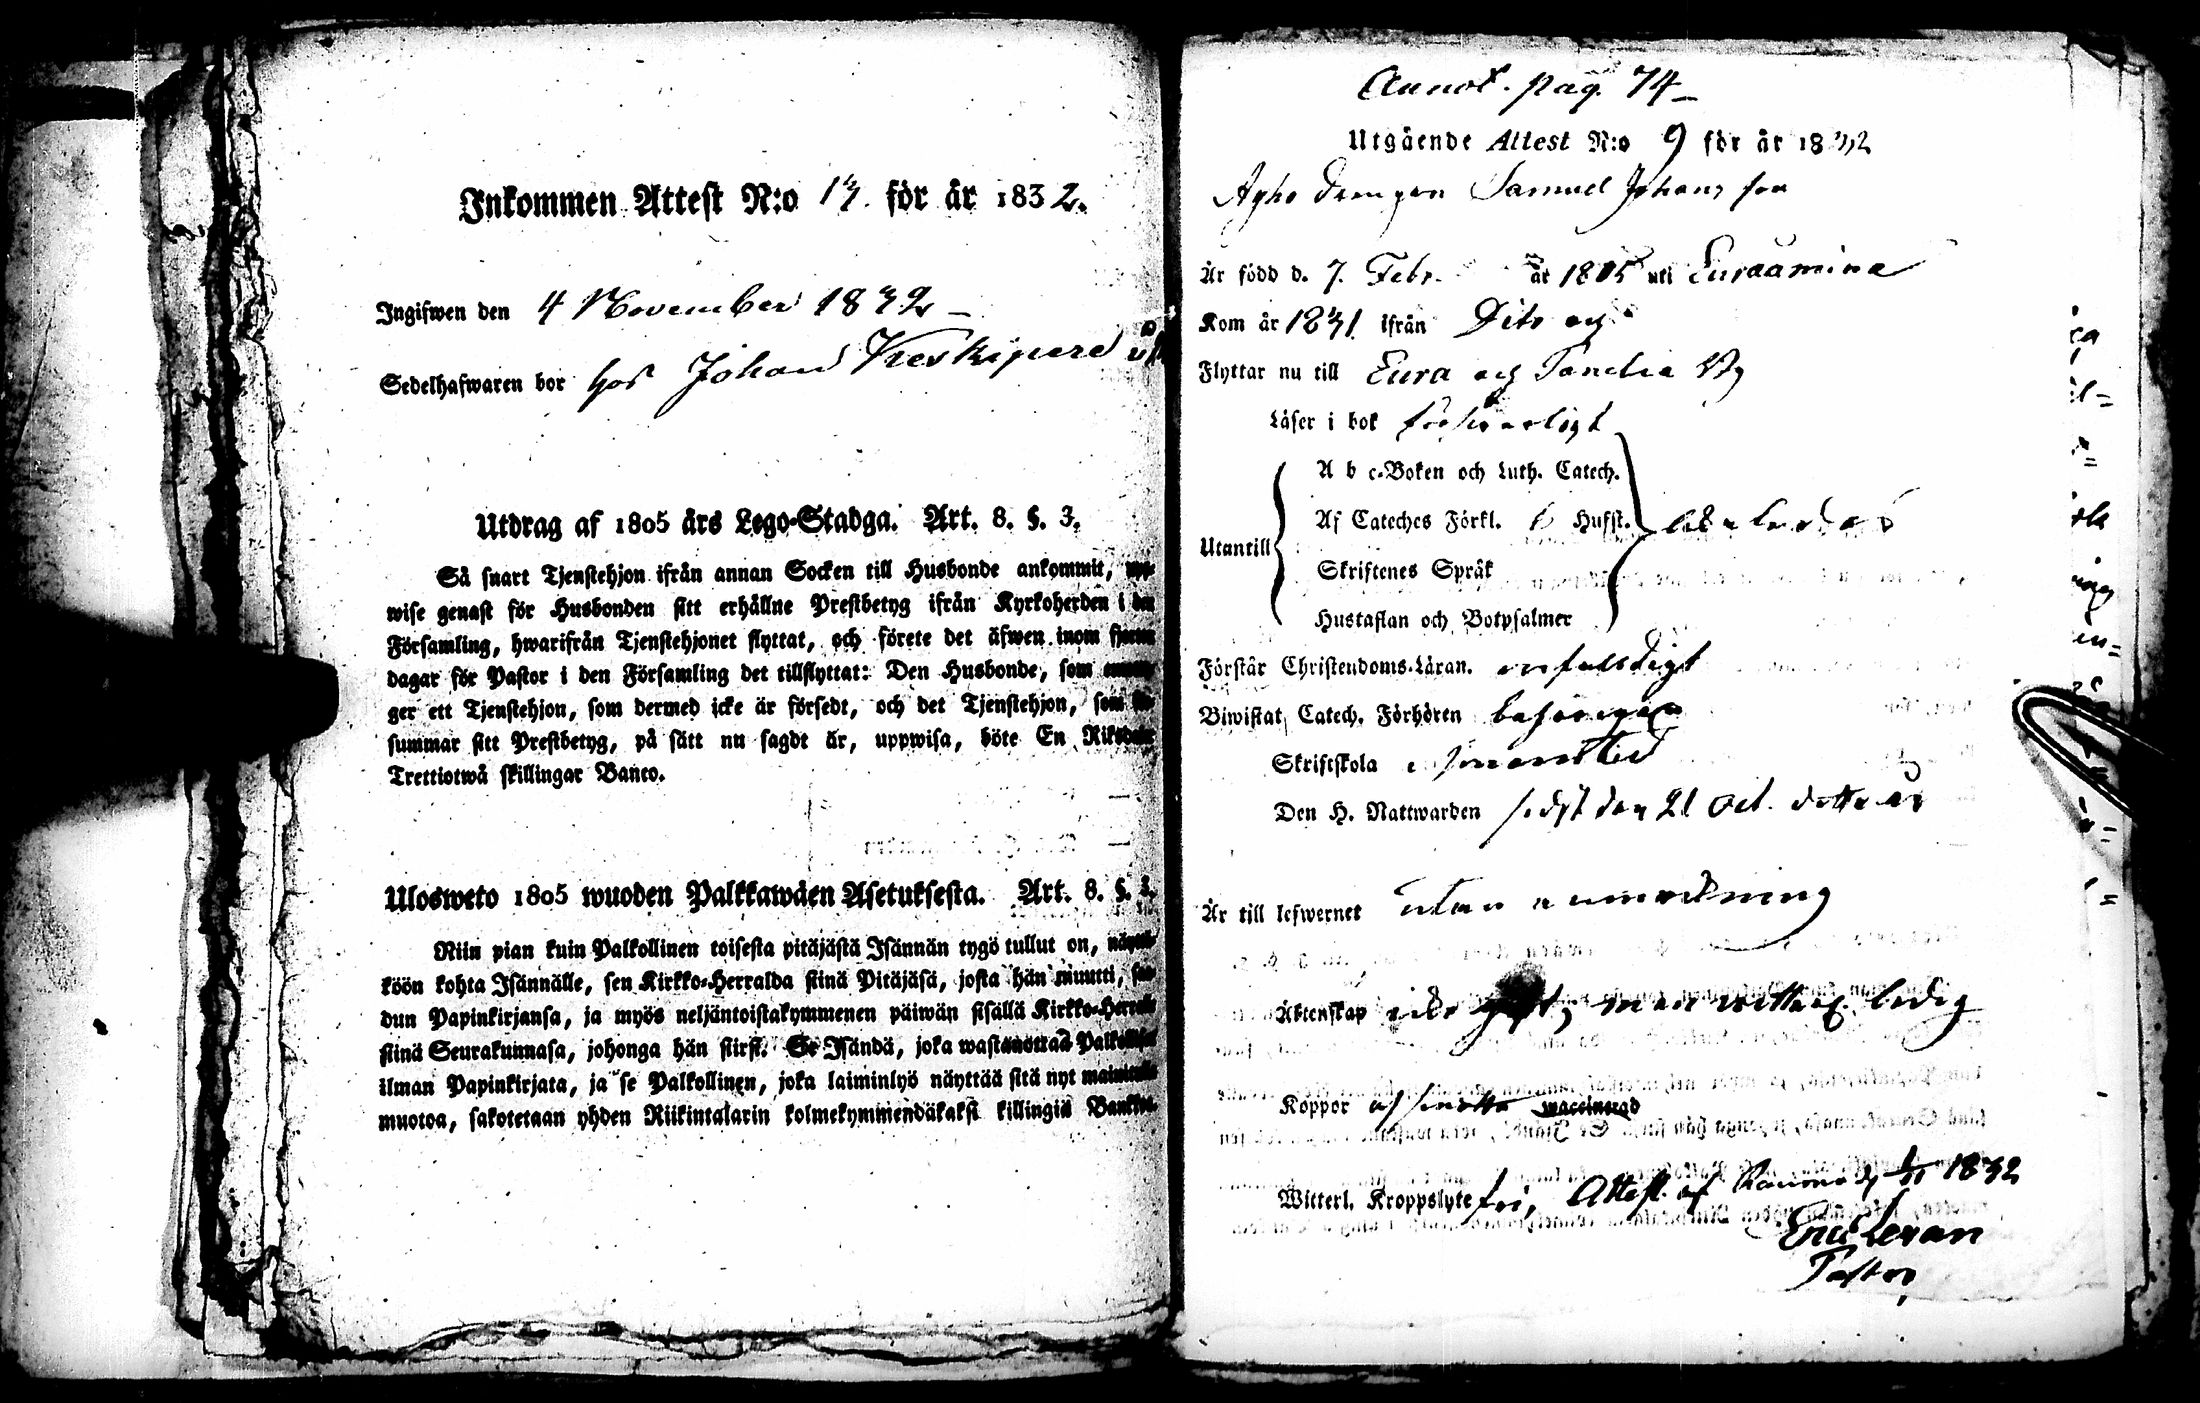 Inkommen Attest N:o 13. för år 1832.
Ingifwen den 4 November 1832 –
Sedelhafwaren bor hos Johan Keskipere
Utdrag af 1805 års Lego-Stadga. Art. 8. §. 3.
Så snart Tjenstehjon ifrån annan Socken till Husbonde ankommit,
wise genast för Husbonden sitt erhållne Prestbetyg ifrån Kyrkoherden i den
Församling, hwarifrån Tjenstehjonet flyttat, och förete det äfwen inom fjorton
dagar för Pastor i den Församling det tillflyttat: Den Husbonde, som
ger ett Tjenstehjon, som dermed icke är försedt, och det Tjenstehjon, som
summar sitt Prestbetyg, på sätt nu sagdt är, uppwisa, böte En Riksdaler
Trettiotwå skillingar Banco.
Ulosweto 1805 wuoden Palkkawäen Asetuksesta. Art. 8. §. 3.
Niin pian kuin Palkollinen toisesta pitäjästä Isännän tygö tullut on,
köön kohta Isännälle, sen Kirkko-Herralda siinä Pitäjäsä, josta hän muutti,
dun Papinkirjansa, ja myös neljäntoistakymmenen päiwän sisällä Kirkko-Herralle
siinä Seurakunnasa, johonga hän siirsi. Se Isändä, joka wastanottaa Palkollisen
ilman Papinkirjata, ja se Palkollinen, joka laiminlyö näyttää sitä nyt mainitulla
muotoa, sakotetaan yhden Riikintalarin kolmekymmendäkaksi killingiä Bankos.
Annot. pag. 74 –
Utgående Attest N:o 9 för år 1832
Drengen Samuel Johansson
Är född d. 7. Febr. år 1805 uti Euraåminne
Kom år 1831 ifrån Dito och
Flyttar nu till Eura och
Läser i bok försvarligt
A b c-Boken och Luth. Catech.
Af Cateches Förkl. 6 Hufst.
Utantill
Skriftenes Språk
Hustaflan och Botpsalmer
Förstår Christendoms-Läran. enfaldigt
Biwistat Catech. Förhören behörigen
Skriftskola
Den H. Nattwarden sidst den 21 Oct. detta år
Är till lefwernet utan anmärkning
Äktenskap icke gift, men
ledig
Koppor waccinerad
Witterl. Kroppslyte fri, Attest. af Raumo d. 1832
Eric Leran
Pastor